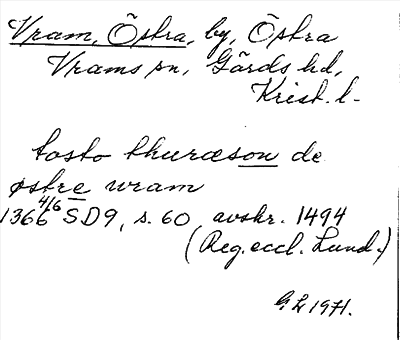 Vram, Östra, by, Östra
Vrams sn, Gärds hd,
Krist. l.
tosto thuræson de
østre wram
1366 4/6 SD9, s. 60 avskr. 1494
(Reg. eccl. Lund.)
G L 1971.